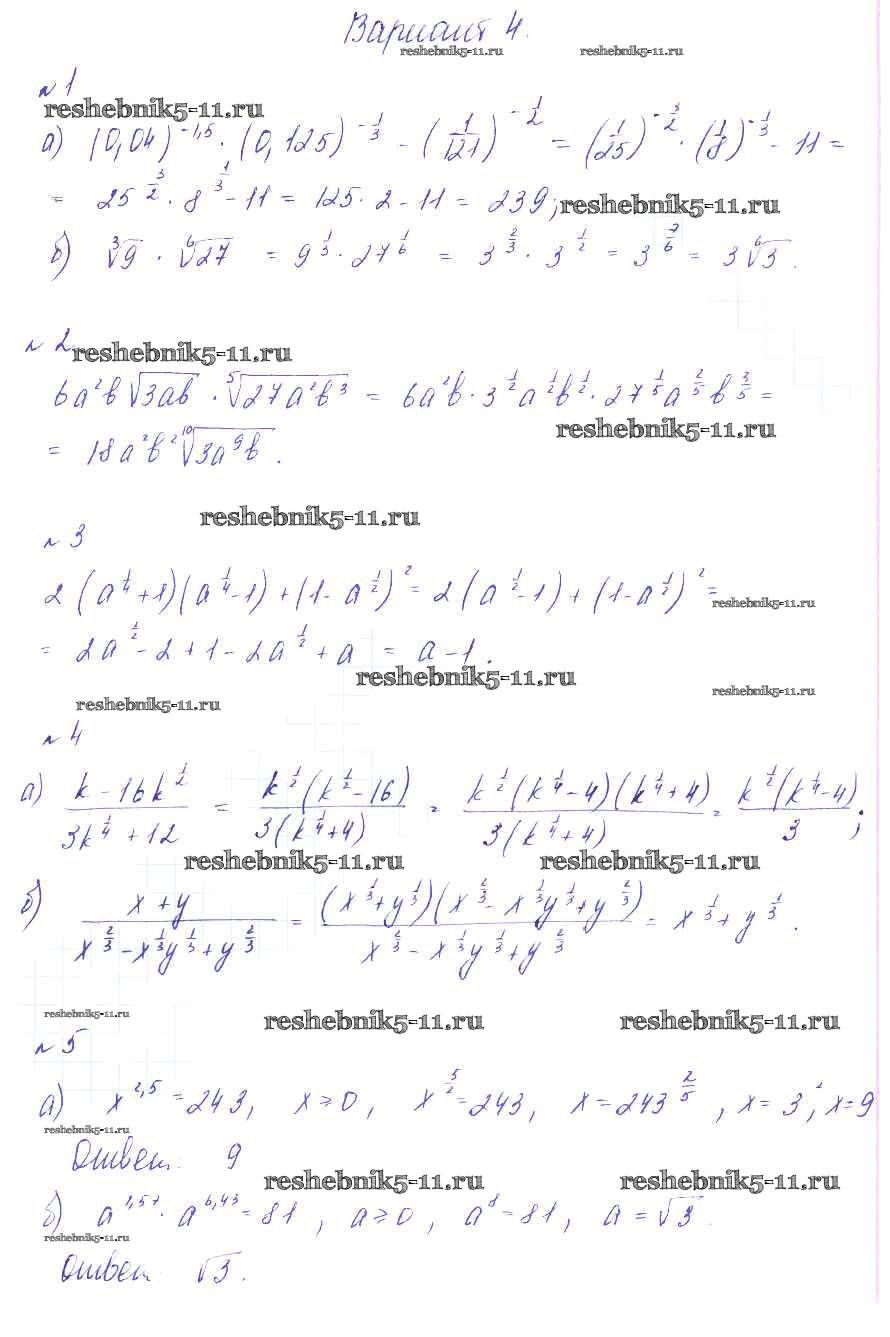 Вариант 4.
reshebnik5-11.ru reshebnik5-11.ru
№1
reshebnik5-11.ru
а) (0,04)^{-1,5} · (0,125)^{-1/3} - (1/121)^{-1/2} = (1/25)^{-3/2} · (1/8)^{-1/3} - 11 =
= 25^{3/2} · 8^{1/3} - 11 = 125 · 2 - 11 = 239; reshebnik5-11.ru
б) ∛9 · ⁶√27 = 9^{1/3} · 27^{1/6} = 3^{2/3} · 3^{1/2} = 3^{7/6} = 3 ⁶√3.
№2 reshebnik5-11.ru
6a²b √(3ab) · ⁵√(27a²b³) = 6a²b · 3^{1/2} a^{1/2} b^{1/2} · 27^{1/5} a^{2/5} b^{3/5} =
reshebnik5-11.ru
= 18a²b² ¹⁰√(3a⁹b).
reshebnik5-11.ru
№3
2(a^{1/4} + 1)(a^{1/4} - 1) + (1 - a^{1/2})² = 2(a^{1/2} - 1) + (1 - a^{1/2})² =
reshebnik5-11.ru
= 2a^{1/2} - 2 + 1 - 2a^{1/2} + a = a - 1.
reshebnik5-11.ru
reshebnik5-11.ru reshebnik5-11.ru
№4
а) (k - 16k^{1/2})/(3k^{1/4} + 12) = (k^{1/2}(k^{1/2} - 16))/(3(k^{1/4} + 4)) = (k^{1/2}(k^{1/4} - 4)(k^{1/4} + 4))/(3(k^{1/4} + 4)) = (k^{1/2}(k^{1/4} - 4))/3;
reshebnik5-11.ru reshebnik5-11.ru
б) (x + y)/(x^{2/3} - x^{1/3}y^{1/3} + y^{2/3}) = ((x^{1/3} + y^{1/3})(x^{2/3} - x^{1/3}y^{1/3} + y^{2/3}))/(x^{2/3} - x^{1/3}y^{1/3} + y^{2/3}) = x^{1/3} + y^{1/3}.
reshebnik5-11.ru reshebnik5-11.ru reshebnik5-11.ru
№5
а) x^{2,5} = 243, x ≥ 0, x^{5/2} = 243, x = 243^{2/5}, x = 3², x = 9
reshebnik5-11.ru
Ответ: 9
reshebnik5-11.ru reshebnik5-11.ru
б) a^{1,57} · a^{6,43} = 81, a ≥ 0, a⁸ = 81, a = √3.
reshebnik5-11.ru
Ответ: √3.